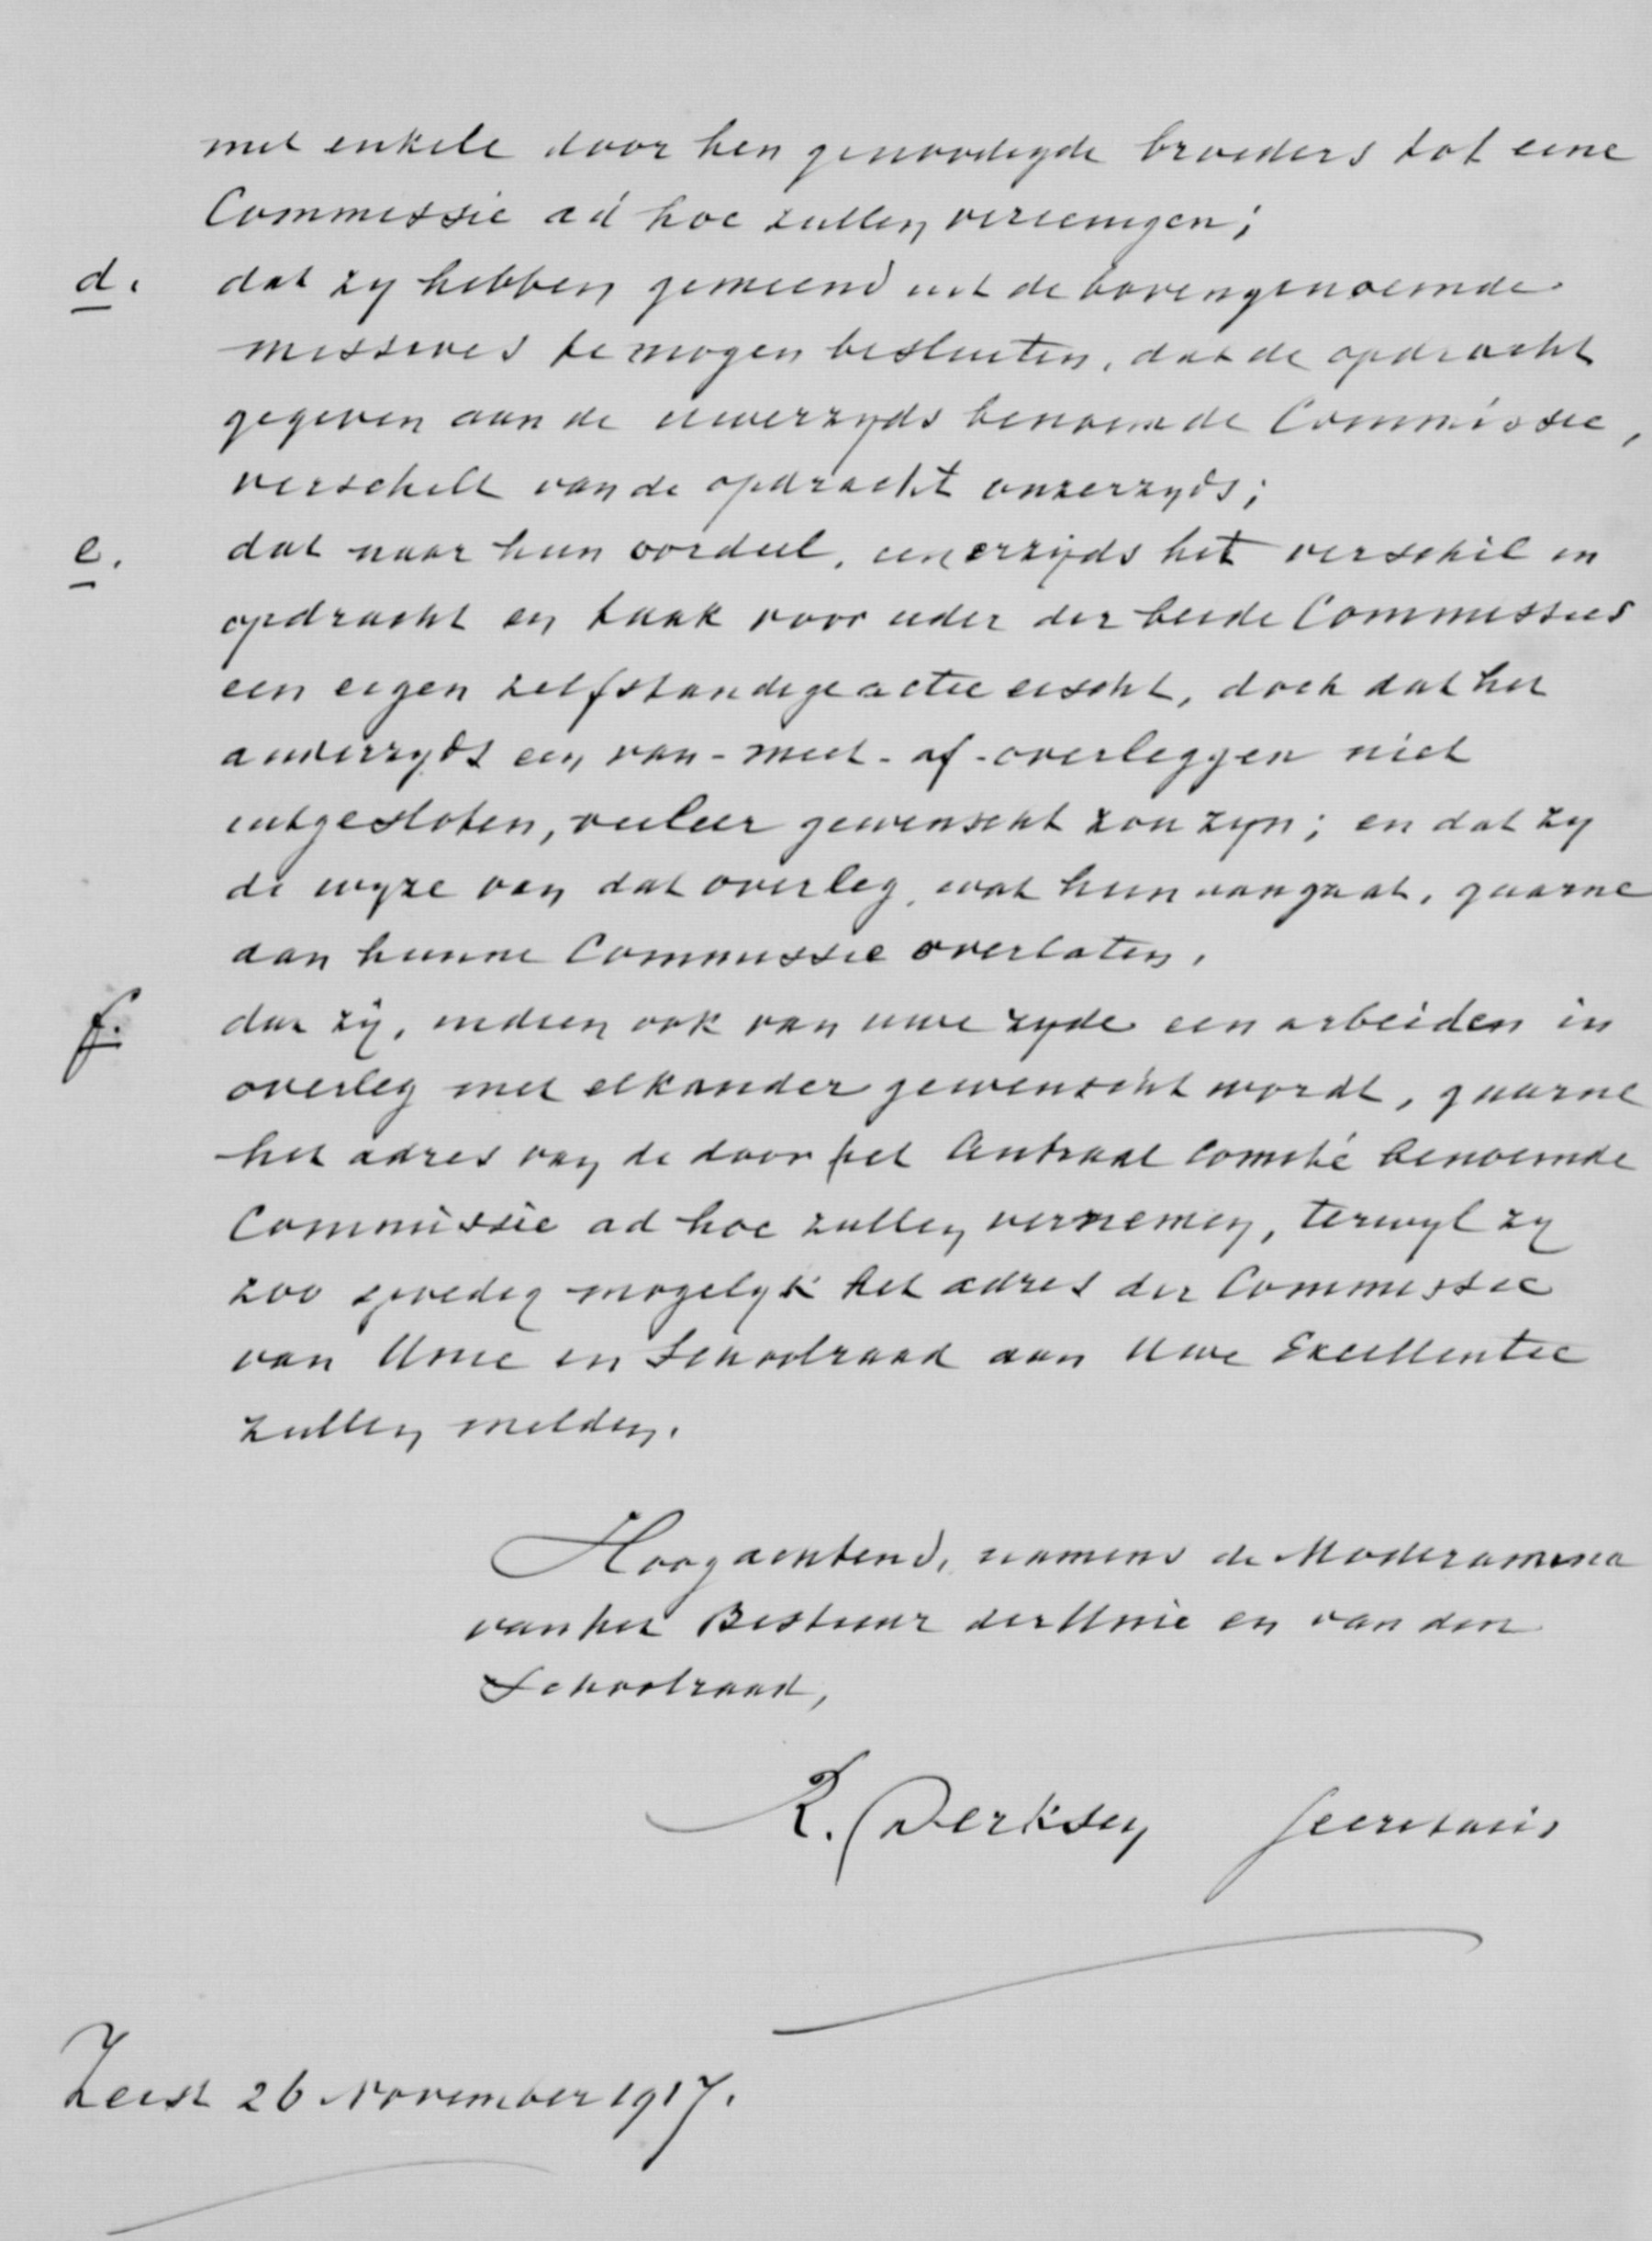 met enkele door hen genoodigde broeders tot eene
Commissie ad hoc zullen vereenigen;
d. dat zy hebben gemeend uit de bovengenoemde
missives te mogen besluiten, dat de opdracht
gegeven aan de uwerzyds benoemde Commissie,
verschilt van de opdracht onzerzyds;
e. dat naar hun oordeel, eenerzijds het verschil in
opdracht en taak voor ieder der beide Commissies
een eigen zelfstandige actie eischt, doch dat het
anderzyds een van-meet-af-overleggen niet
uitgesloten, veeleer gewenscht zou zyn; en dat zy
de wyze van dat overleg, wat hun aangaat, gaarne
aan hunne Commissie overlaten.
f. dat zij, indien ook van uwe zyde een arbeiden in
overleg met elkander gewenscht wordt, gaarne
het adres van de door het Centraal Comité benoemde
Commissie ad hoc zullen vernemen, terwyl zy
zoo spoedig mogelyk het adres der Commissie
van Unie en Schoolraad aan Uwe Excellentie
zullen melden.
Hoogachtend, namens de Moderamina
van het Bestuur der Unie en van den
Schoolraad,
R. Derksen Secretaris
Zeist 26 November 1917.